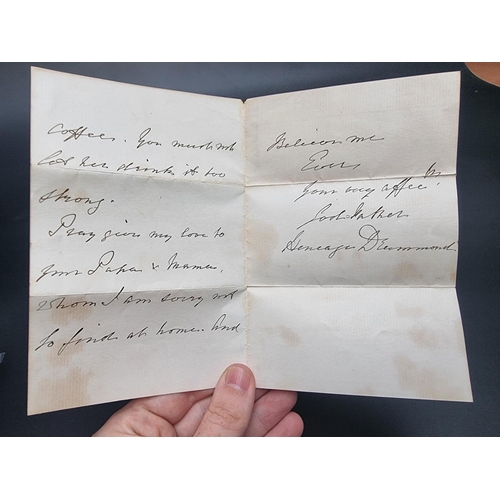 coffee. You must not
let her drink it too
strong.
Pray give my love to
your Papa & Mama,
whom I am sorry not
to find at home. And
Believe me
Ever
Your very affec.
God father
Heneage Drummond